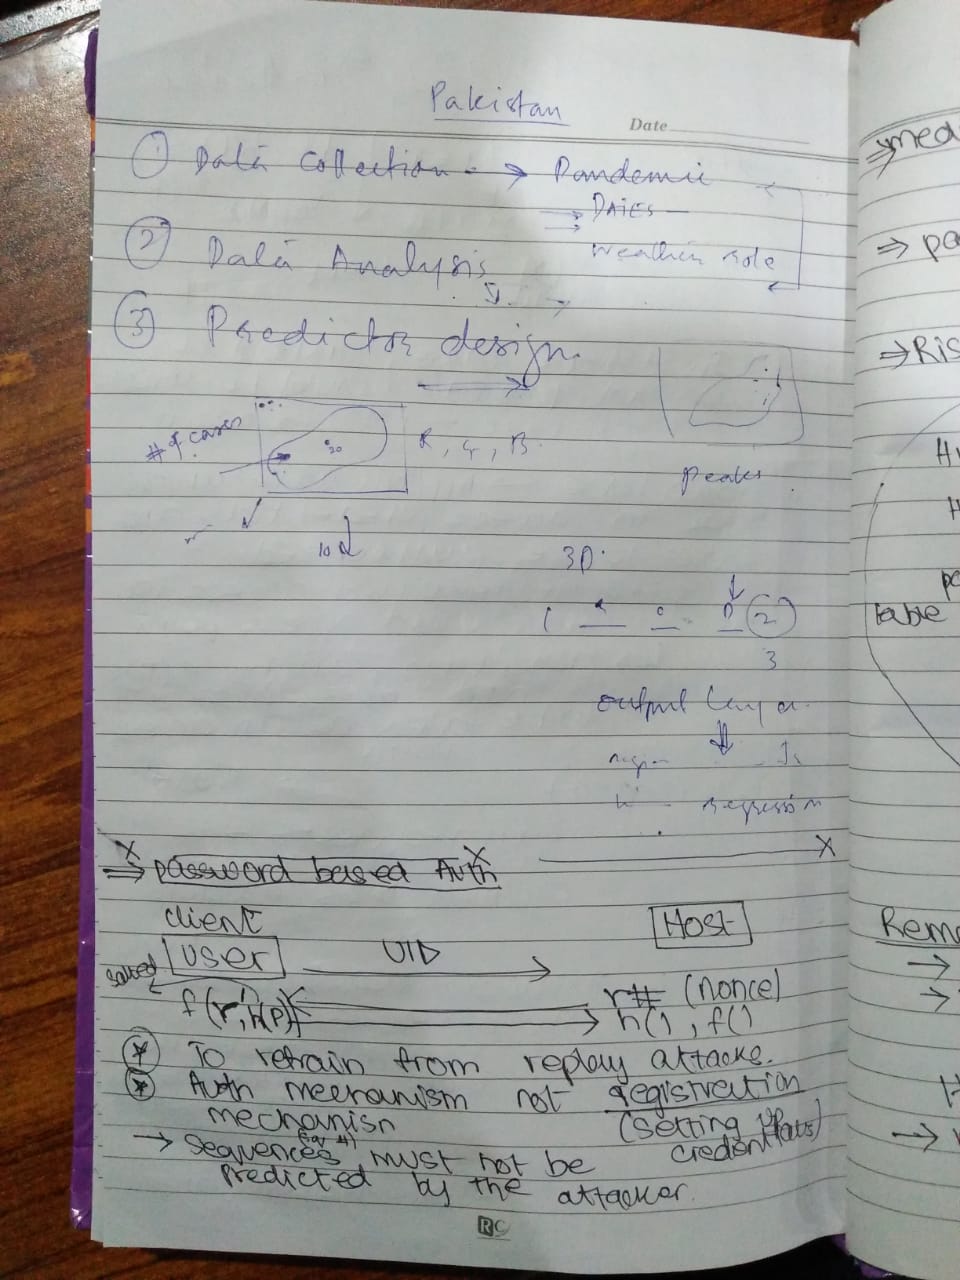 Pakistan
Date
① Data Collection → Pandemic
⇒ DATES
Weather role
② Data Analysis
③ Predictor design
# of cases
R, G, B
Peaks
3D
2
3
output layer
regression
⇒ password based Auth
client
Host
User
UID
saved
f(r', h(P))
r# (nonce)
h(), f()
To refrain from replay attacks.
Auth mechanism not registration
mechanism
(setting up
credentials)
→ sequences must not be
predicted by the attacker.
RC
⇒ med
⇒ pa
⇒ Ris
H
table
Rem